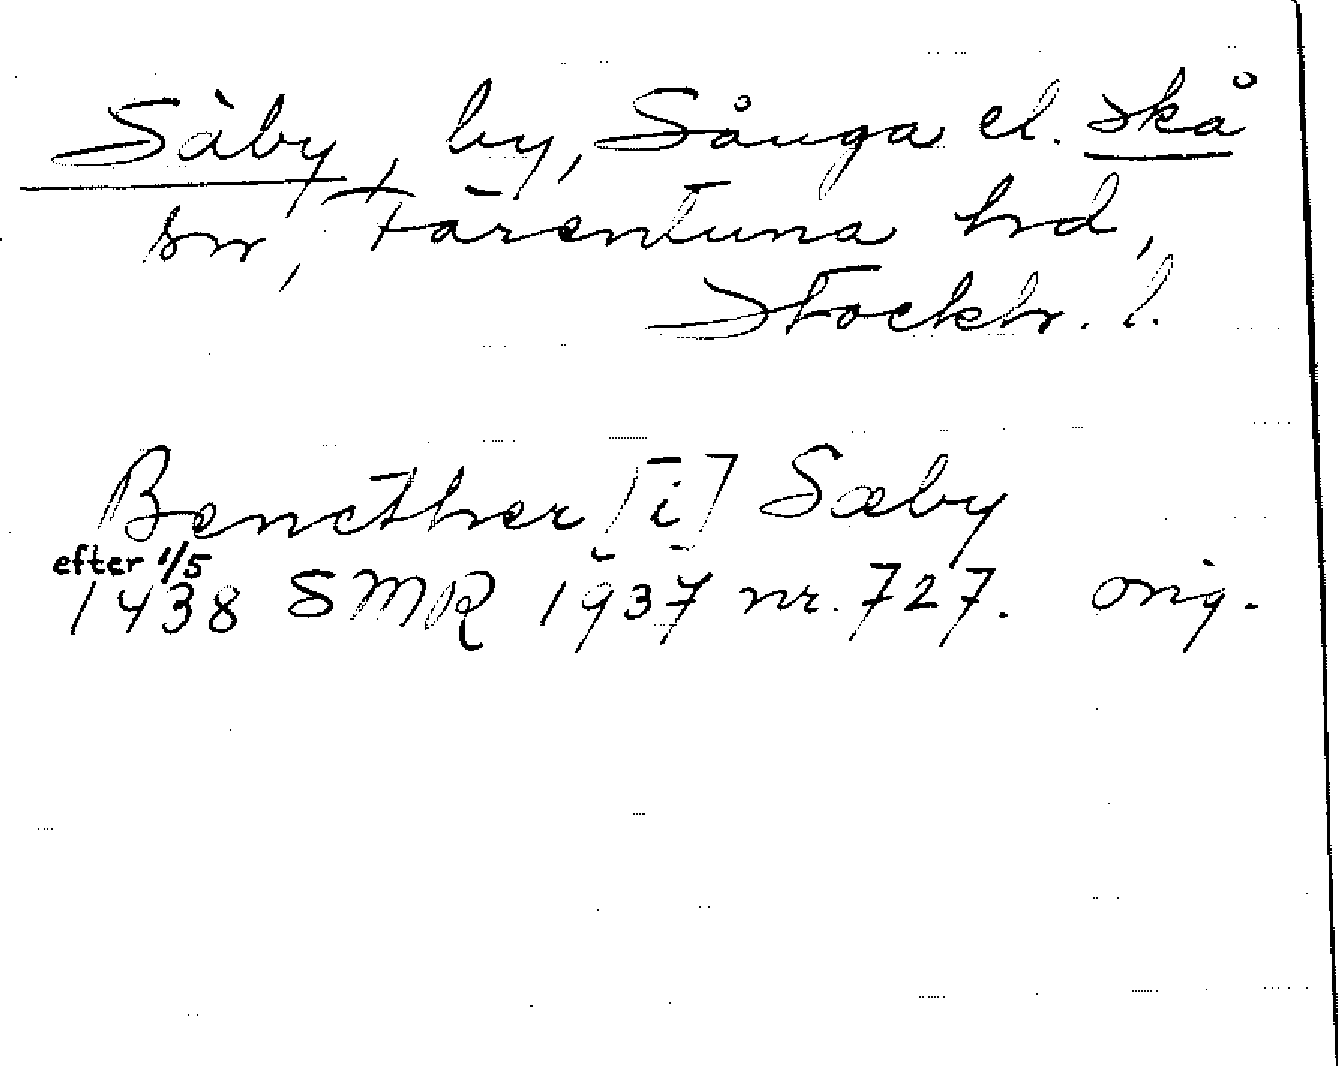 Säby, by, Sånga el. Skå
sn, Färentuna hd,
Stockh. l.
Bencther [i] Sæby
efter 1/5
1438 SMR 1937 nr. 727. orig.